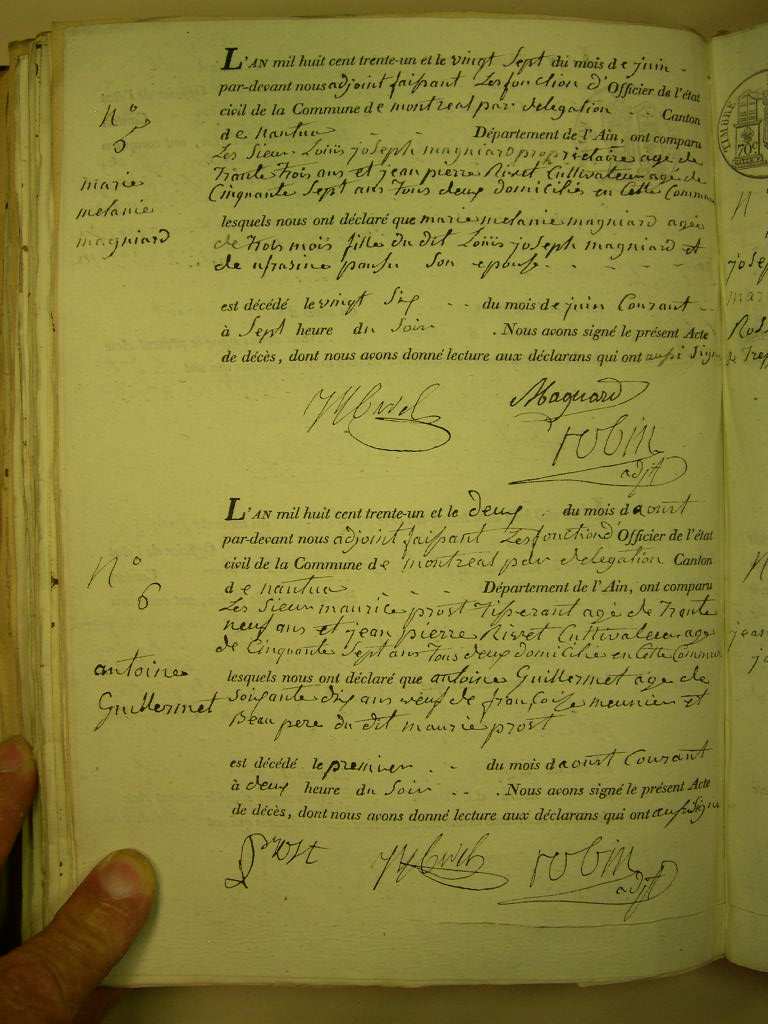 N°
5
marie
melanie
magniard
L'AN mil huit cent trente-un et le vingt Sept du mois de juin
par-devant nous adjoint faissant Les fonction d'Officier de l'état
civil de la Commune de montreal par delegation Canton
de nantua Département de l'Ain, ont comparu
Les Sieur Loüis joseph magniard propriétaire agé de
Trante Trois ans et jean pierre Rivet Cultivateur agé de
Cinquante Sept ans Tous deux domiciliés en Cette Commune
lesquels nous ont déclaré que marie melanie magniard agée
de Trois mois fille du dit Loüis joseph magniard et
de Son epouse
est décédé le vingt Six du mois de juin Courant
à Sept heure du Soir . Nous avons signé le présent Acte
de décès, dont nous avons donné lecture aux déclarans qui ont aussi Signé
Magnard
robin
adjt
N°
6
antoine
Guillermet
L'AN mil huit cent trente-un et le deux du mois d'aoust
par-devant nous adjoint faissant Les fonction d'Officier de l'état
civil de la Commune de montreal par delegation Canton
de nantua Département de l'Ain, ont comparu
Les Sieur maurice prost Tisserant agé de Trante
neuf ans et jean pierre Rivet Cultivateur agé
de Cinquante Sept ans Tous deux domicilié en Cette Commune
lesquels nous ont déclaré que antoine Guillermet agé de
Soixante dix ans veuf de françoize meunier et
Beau pere du dit maurice prost
est décédé le premier du mois d'aoust Courant
à deux heure du Soir . Nous avons signé le présent Acte
de décès, dont nous avons donné lecture aux déclarans qui ont aussi Signé
Prost
robin
adjt
TIMBRE
N°